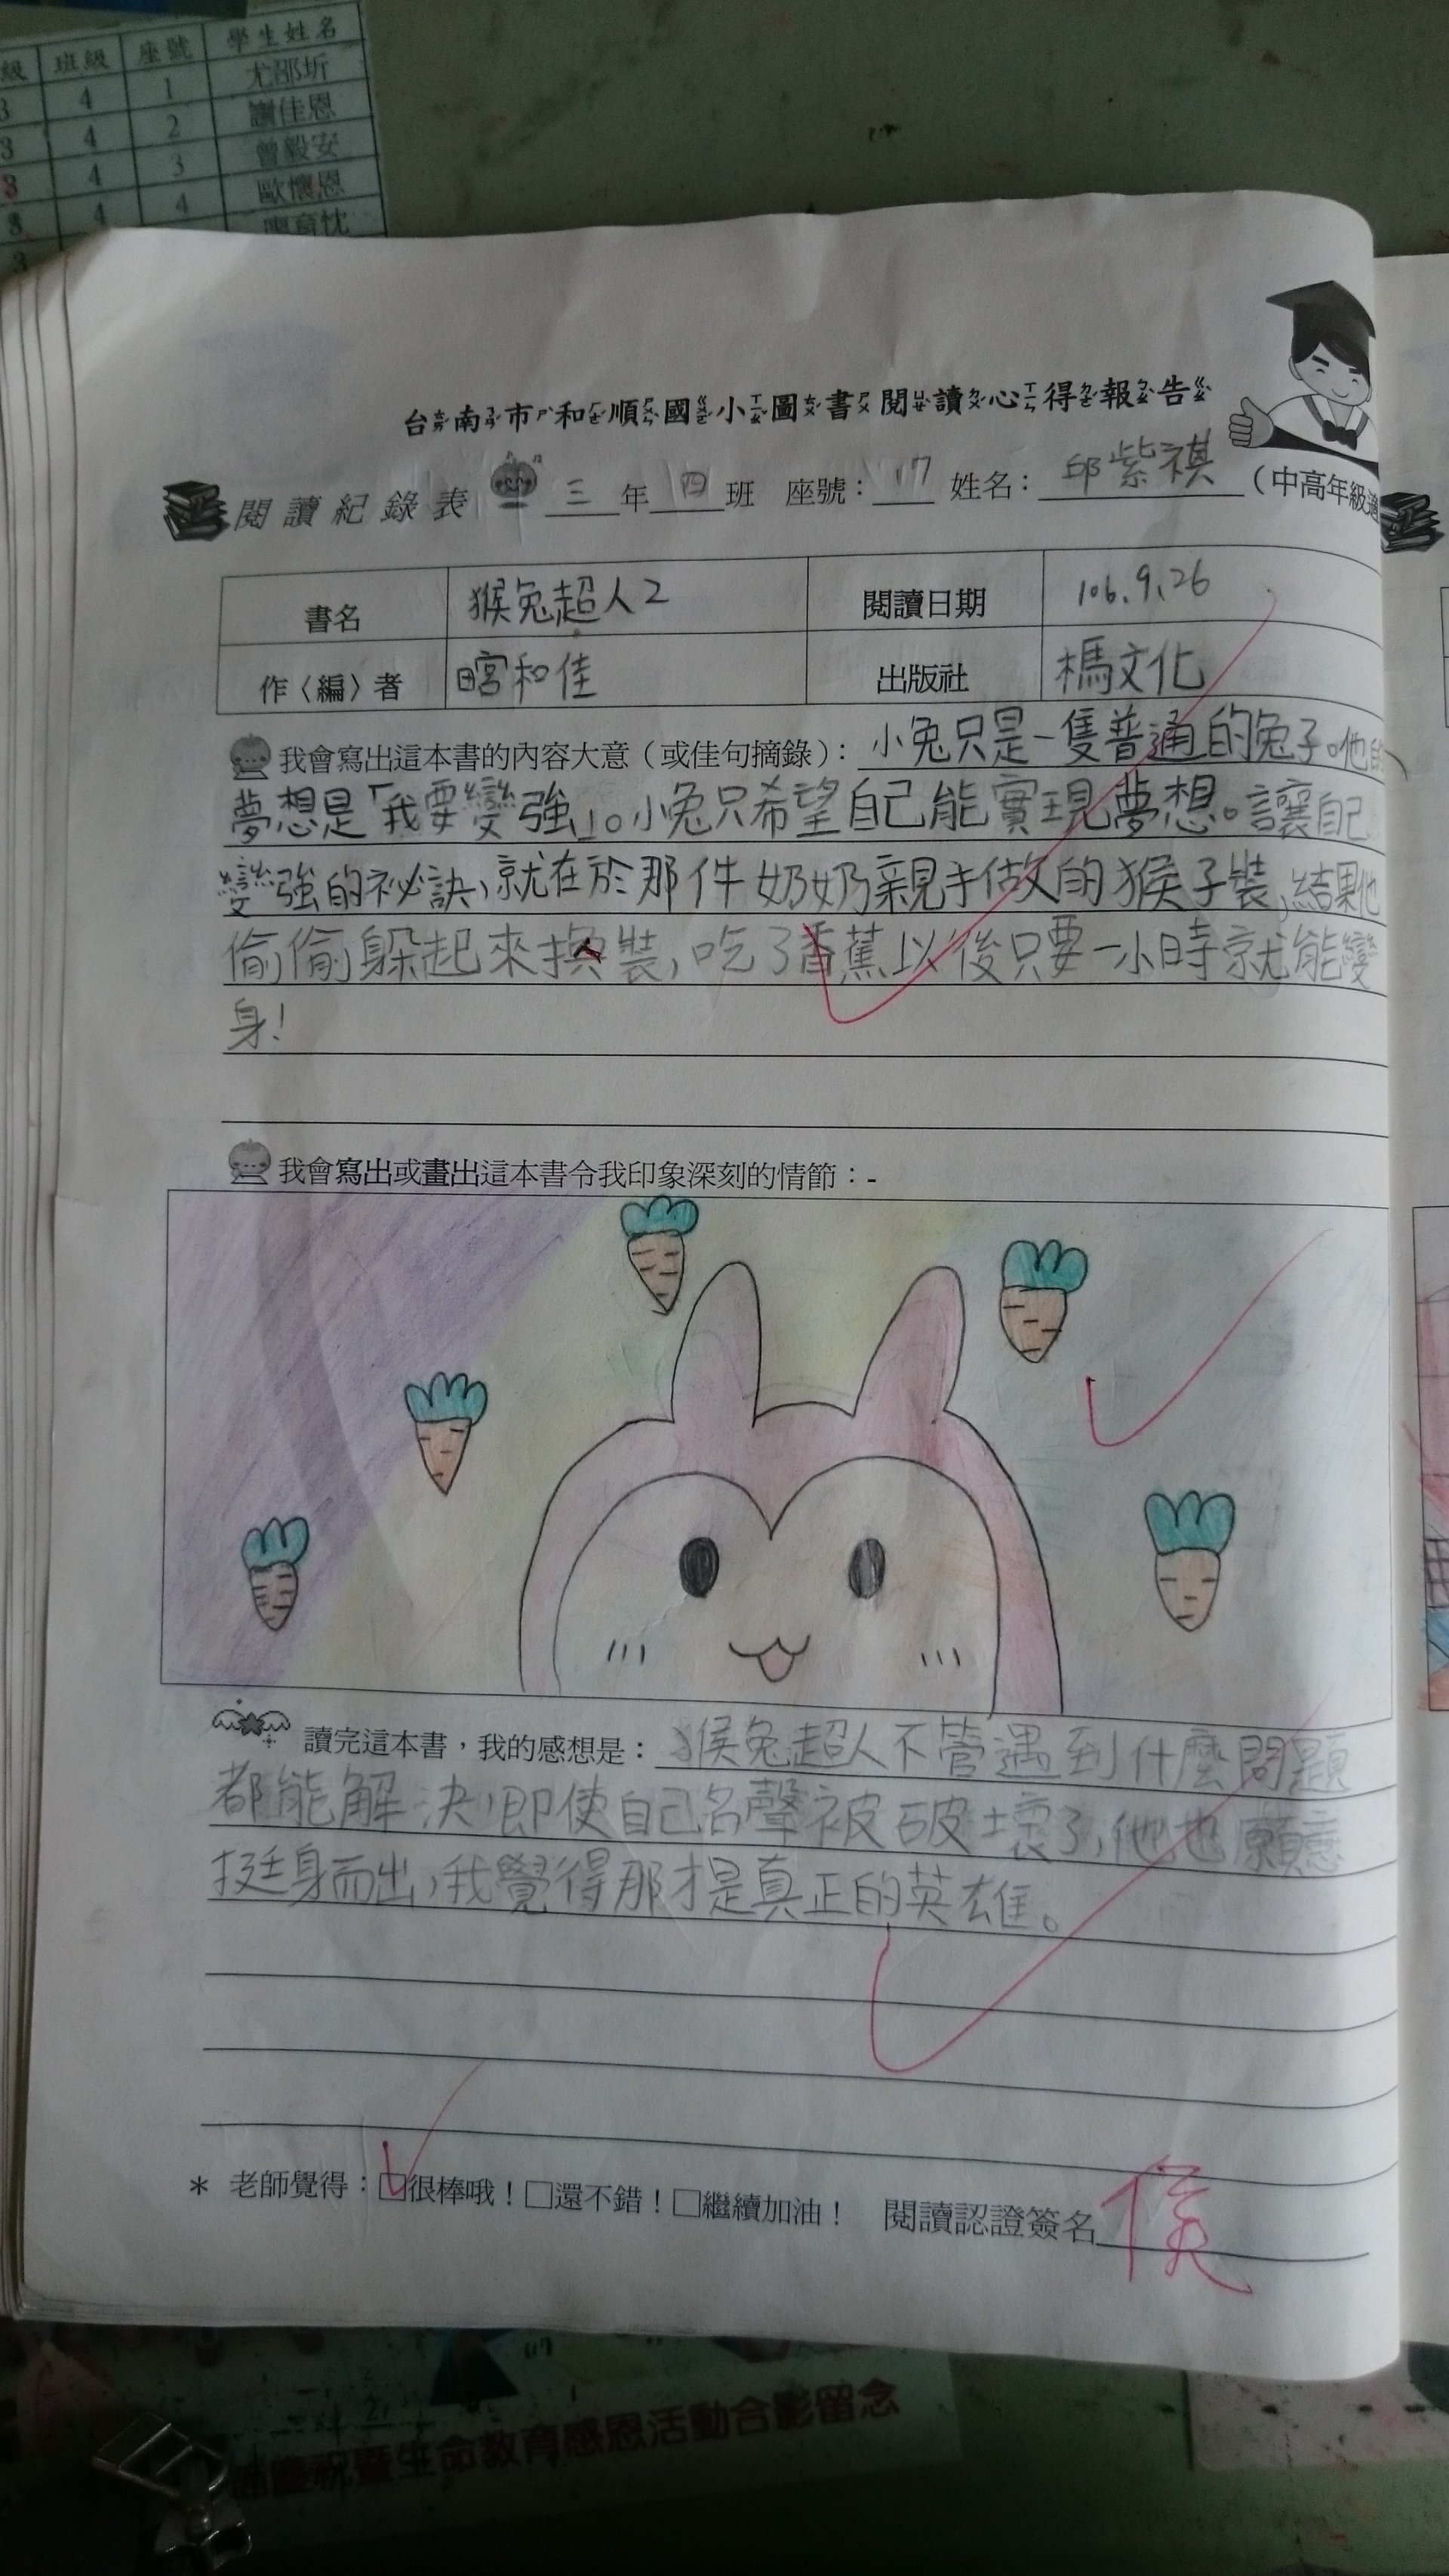 級 班級 座號 學生姓名
3 4 1 尤邵圻
3 4 2 謝佳恩
3 4 3 曾毅安
3 4 4 歐懷恩
3
台南市和順國小圖書閱讀心得報告
閱讀紀錄表 三年四班 座號：17 姓名：邱紫祺（中高年級適
書名 猴兔超人2 閱讀日期 106.9.26
作〈編〉者 宮和佳 出版社 文化
我會寫出這本書的內容大意（或佳句摘錄）：小兔只是一隻普通的兔子。他的
夢想是「我要變強」。小兔只希望自己能實現夢想。讓自己
變強的祕訣，就在於那件奶奶親手做的猴子裝，結果他
偷偷躲起來換裝，吃了香蕉以後只要一小時就能變
身！
我會寫出或畫出這本書令我印象深刻的情節：-
讀完這本書，我的感想是：猴兔超人不管遇到什麼問題
都能解決，即使自己名聲被破壞了，他也願意
挺身而出，我覺得那才是真正的英雄。
＊ 老師覺得：□很棒哦！□還不錯！□繼續加油！ 閱讀認證簽名 侯
慶祝暨生命教育感恩活動合影留念